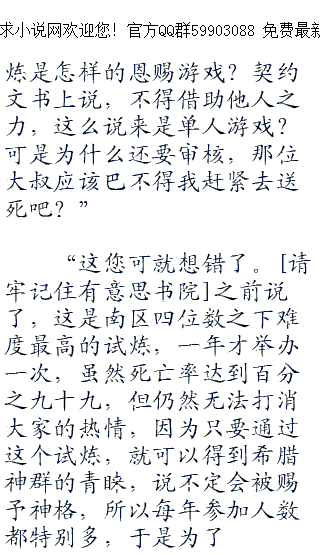 求小说网欢迎您！官方QQ群59903088 免费最新
炼是怎样的恩赐游戏？契约
文书上说，不得借助他人之
力，这么说来是单人游戏？
可是为什么还要审核，那位
大叔应该巴不得我赶紧去送
死吧？”
“这您可就想错了。[请
牢记住有意思书院]之前说
了，这是南区四位数之下难
度最高的试炼，一年才举办
一次，虽然死亡率达到百分
之九十九，但仍然无法打消
大家的热情，因为只要通过
这个试炼，就可以得到希腊
神群的青睐，说不定会被赐
予神格，所以每年参加人数
都特别多，于是为了